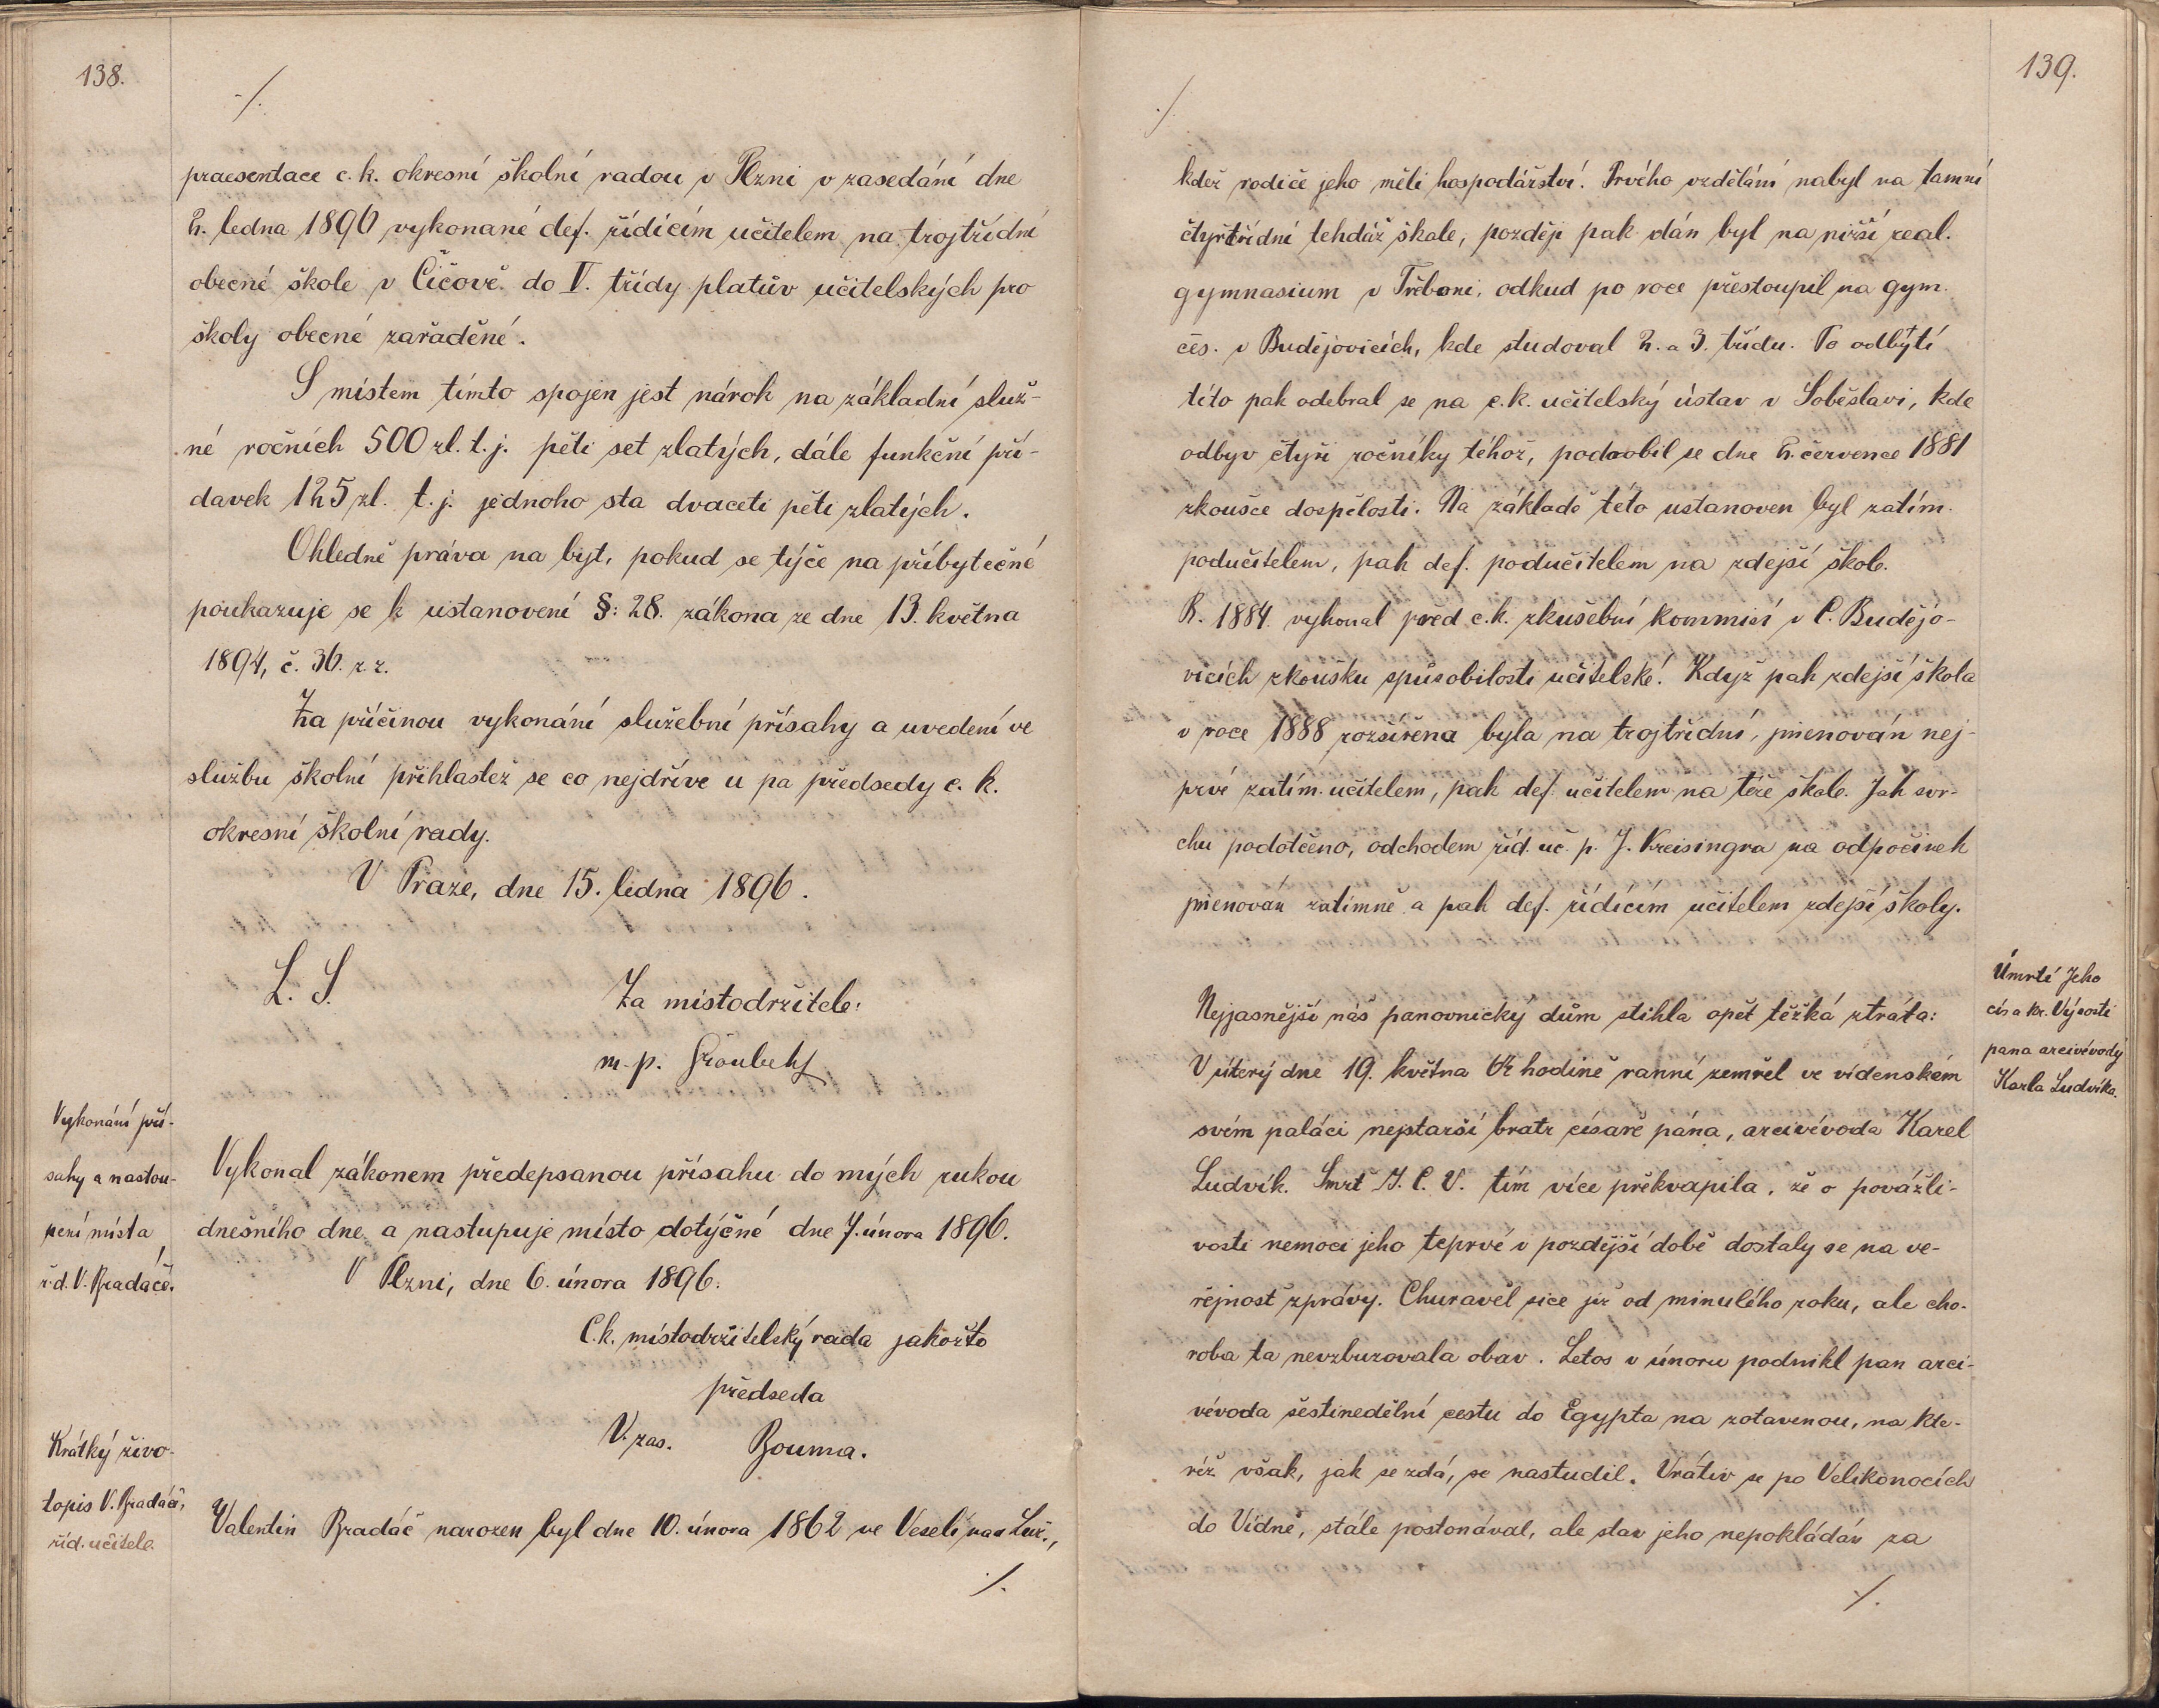 138.
-/.
praesentace c. k. okresní školní radou v Plzni v zasedání dne
2. ledna 1896 vykonané def. řídícím učitelem na trojtřídní
obecné škole v Čičově do V. třídy platův učitelských pro
školy obecné zařaděné.
S místem tímto spojen jest nárok na základní služ-
né ročních 500 zl. t. j. pěti set zlatých, dále funkční pří-
davek 125 zl. t. j. jednoho sta dvaceti pěti zlatých.
Ohledně práva na byt, pokud se týče na příbytečné
poukazuje se k ustanovení §: 28. zákona ze dne 13. května
1894, č. 36. z. z.
Za příčinou vykonání služební přísahy a uvedení ve
službu školní přihlastež se co nejdříve u pa předsedy c. k.
okresní školní rady.
V Praze, dne 15. ledna 1896.
L. S.
Za místodržitele:
m. p.
Vykonání pří-
sahy a nastou-
pení místa
ř. d. V. Bradáče.
Vykonal zákonem předepsanou přísahu do mých rukou
dnešního dne a nastupuje místo dotýčné dne 7. února 1896.
V Plzni, dne 6. února 1896.
C. k. místodržitelský rada jakožto
předseda
V. zas. Bouma.
Krátký živo-
topis V. Bradáče,
říd. učitele.
Valentin Bradáč narozen byl dne 10. února 1862 ve Veselí nad Luž.,
/.
139.
./.
kdež rodiče jeho měli hospodářství. Prvého vzdělání nabyl na tamní
čtyřtřídní tehdáž škole, později pak dán byl na nižší real.
gymnasium v Třeboni, odkud po roce přestoupil na gym.
čes. v Budějovicích, kde studoval 2. a 3. třídu. Po odbýtí
této pak odebral se na c. k. učitelský ústav v Soběslavi, kde
odbyv čtyři ročníky téhož, podrobil se dne 2. července 1881
zkoušce dospělosti. Na základě této ustanoven byl zatím.
podučitelem, pak def. podučitelem na zdejší škole.
R. 1884. vykonal před c. k. zkušební kommisí v Č. Budějo-
vicích zkoušku spůsobilosti učitelské. Když pak zdejší škola
v roce 1888 rozšířena byla na trojtřídní, jmenován nej-
prvé zatím. učitelem, pak def. učitelem na téže škole. Jak svr-
chu podotčeno, odchodem říd. uč. p. J. Kreisingra na odpočinek
jmenován zatímně a pak def. řídícím učitelem zdejší školy.
Úmrtí Jeho
cís a kr. Výsosti
pana arcivévody
Karla Ludvíka.
Nejjasnější náš panovnický dům stihla opět těžká ztráta:
V úterý dne 19. května hodině ranní zemřel ve vídenském
svém paláci nejstarší bratr císaře pána, arcivévoda Karel
Ludvík. Smrť J. C. V. tím více překvapila, že o povážli-
vosti nemoci jeho teprvé v pozdější době dostaly se na ve-
řejnosť zprávy. Churavěl sice již od minulého roku, ale cho-
roba ta nevzbuzovala obav. Letos v únoru podnikl pan arci-
vévoda šestinedělní cestu do Egypta na zotavenou, na kte-
réž však, jak se zdá, se nastudil. Vrátiv se po Velikonocích
do Vídně, stále postonával, ale stav jeho nepokládán za
/.